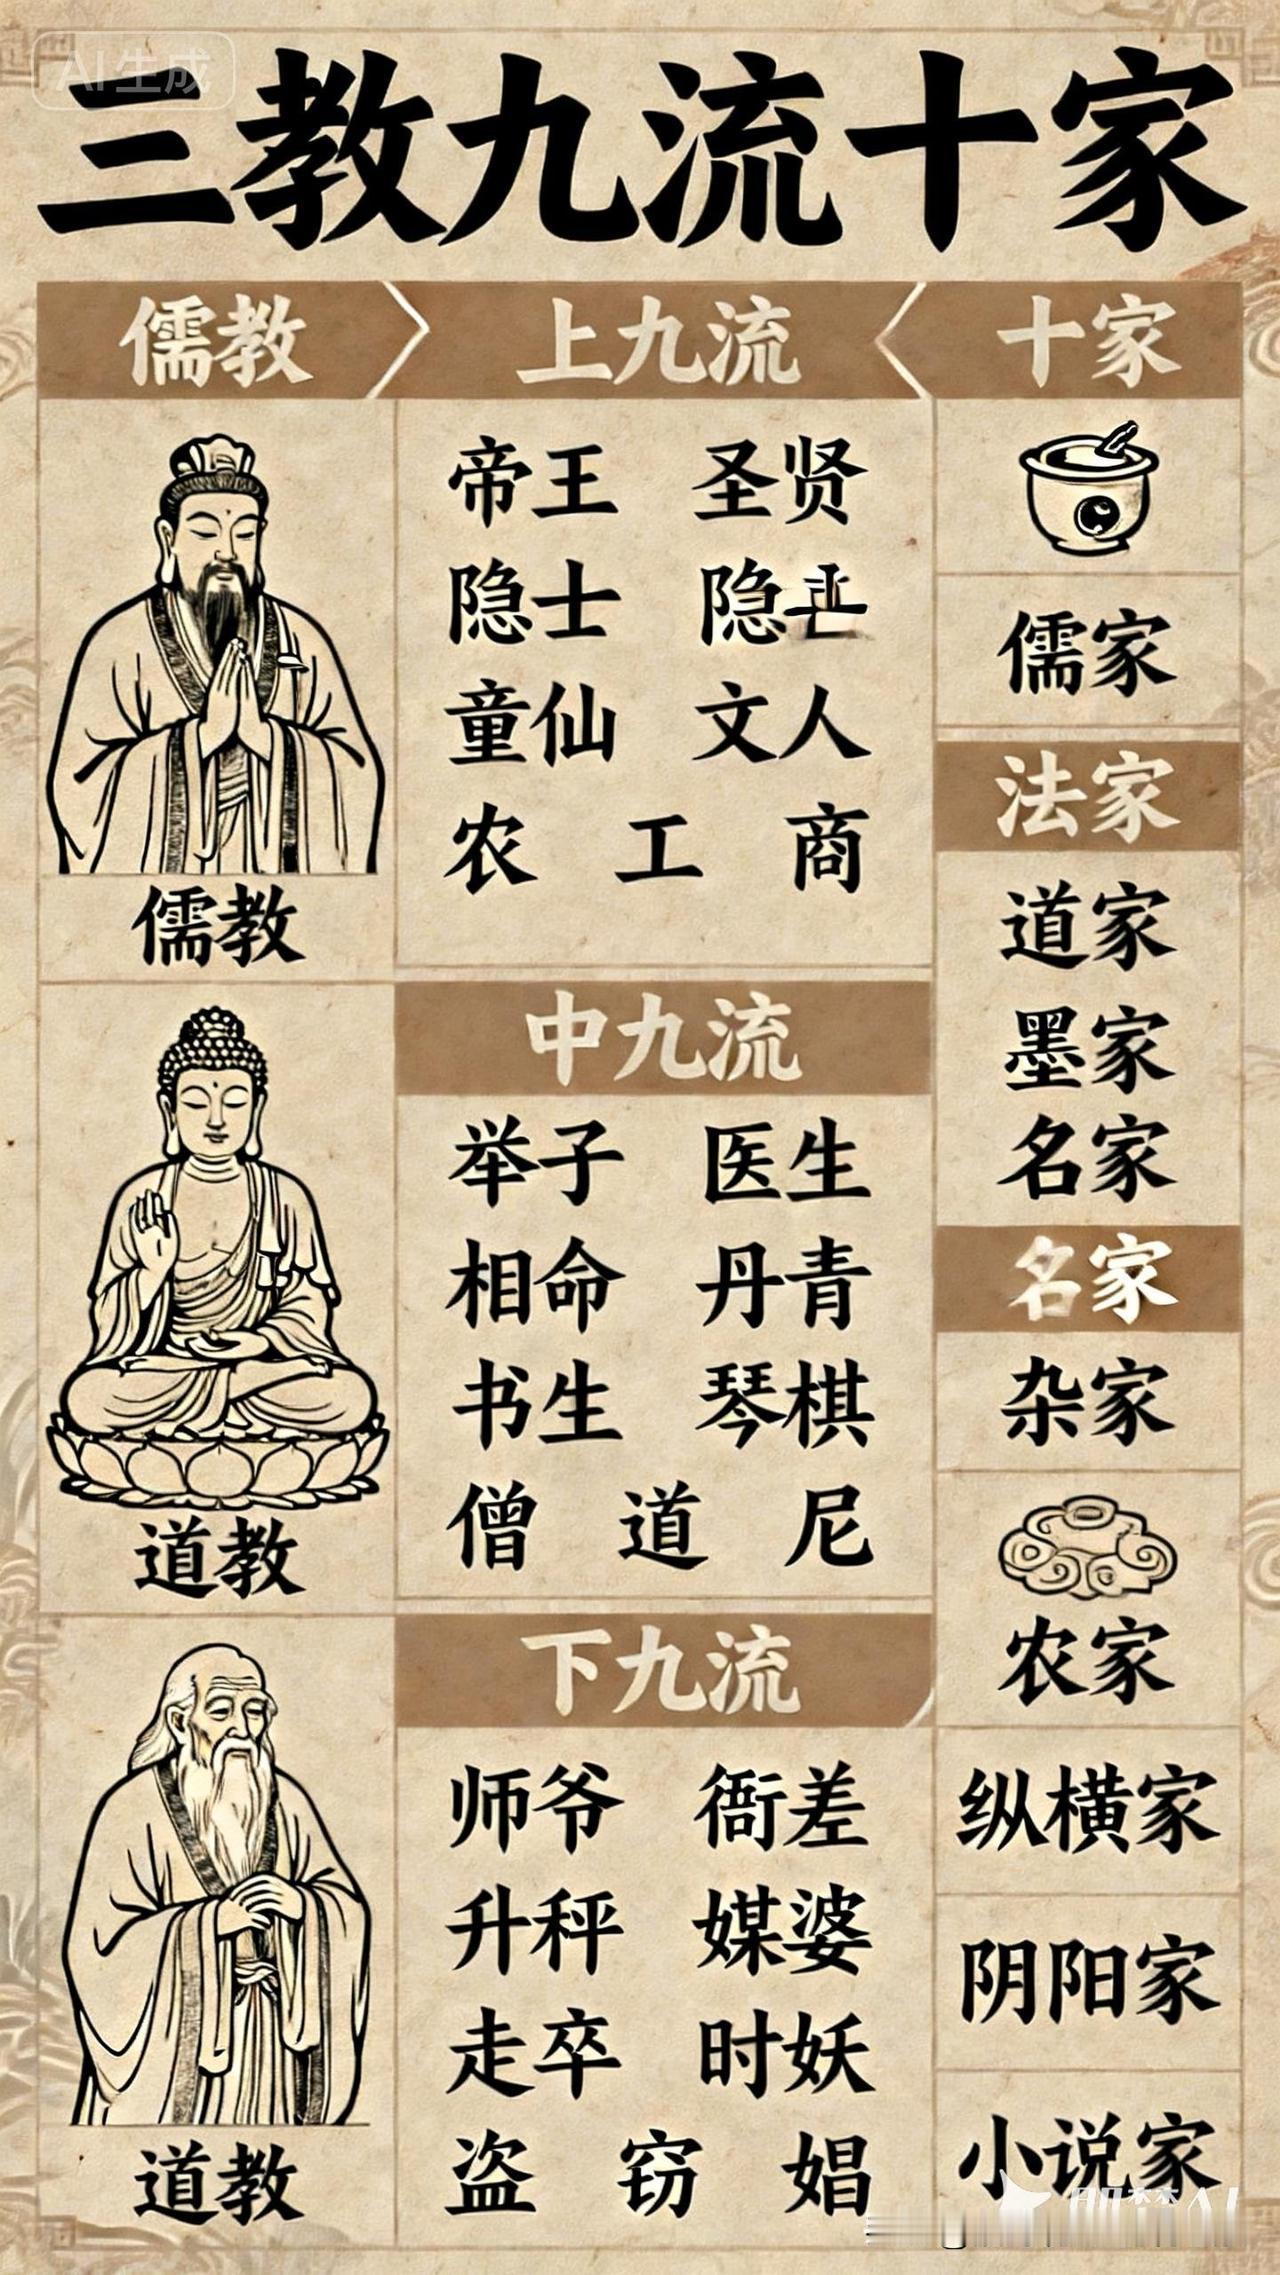 AI生成
三教九流十家
儒教
上九流
十家
儒教
道教
道教
帝王 圣贤
隐士 隐
童仙 文人
农 工 商
中九流
举子 医生
相命 丹青
书生 琴棋
僧 道 尼
下九流
师爷 衙差
升秤 媒婆
走卒 时妖
盗 窃 娼
儒家
法家
道家
墨家
名家
名家
杂家
农家
纵横家
阴阳家
小说家
AI